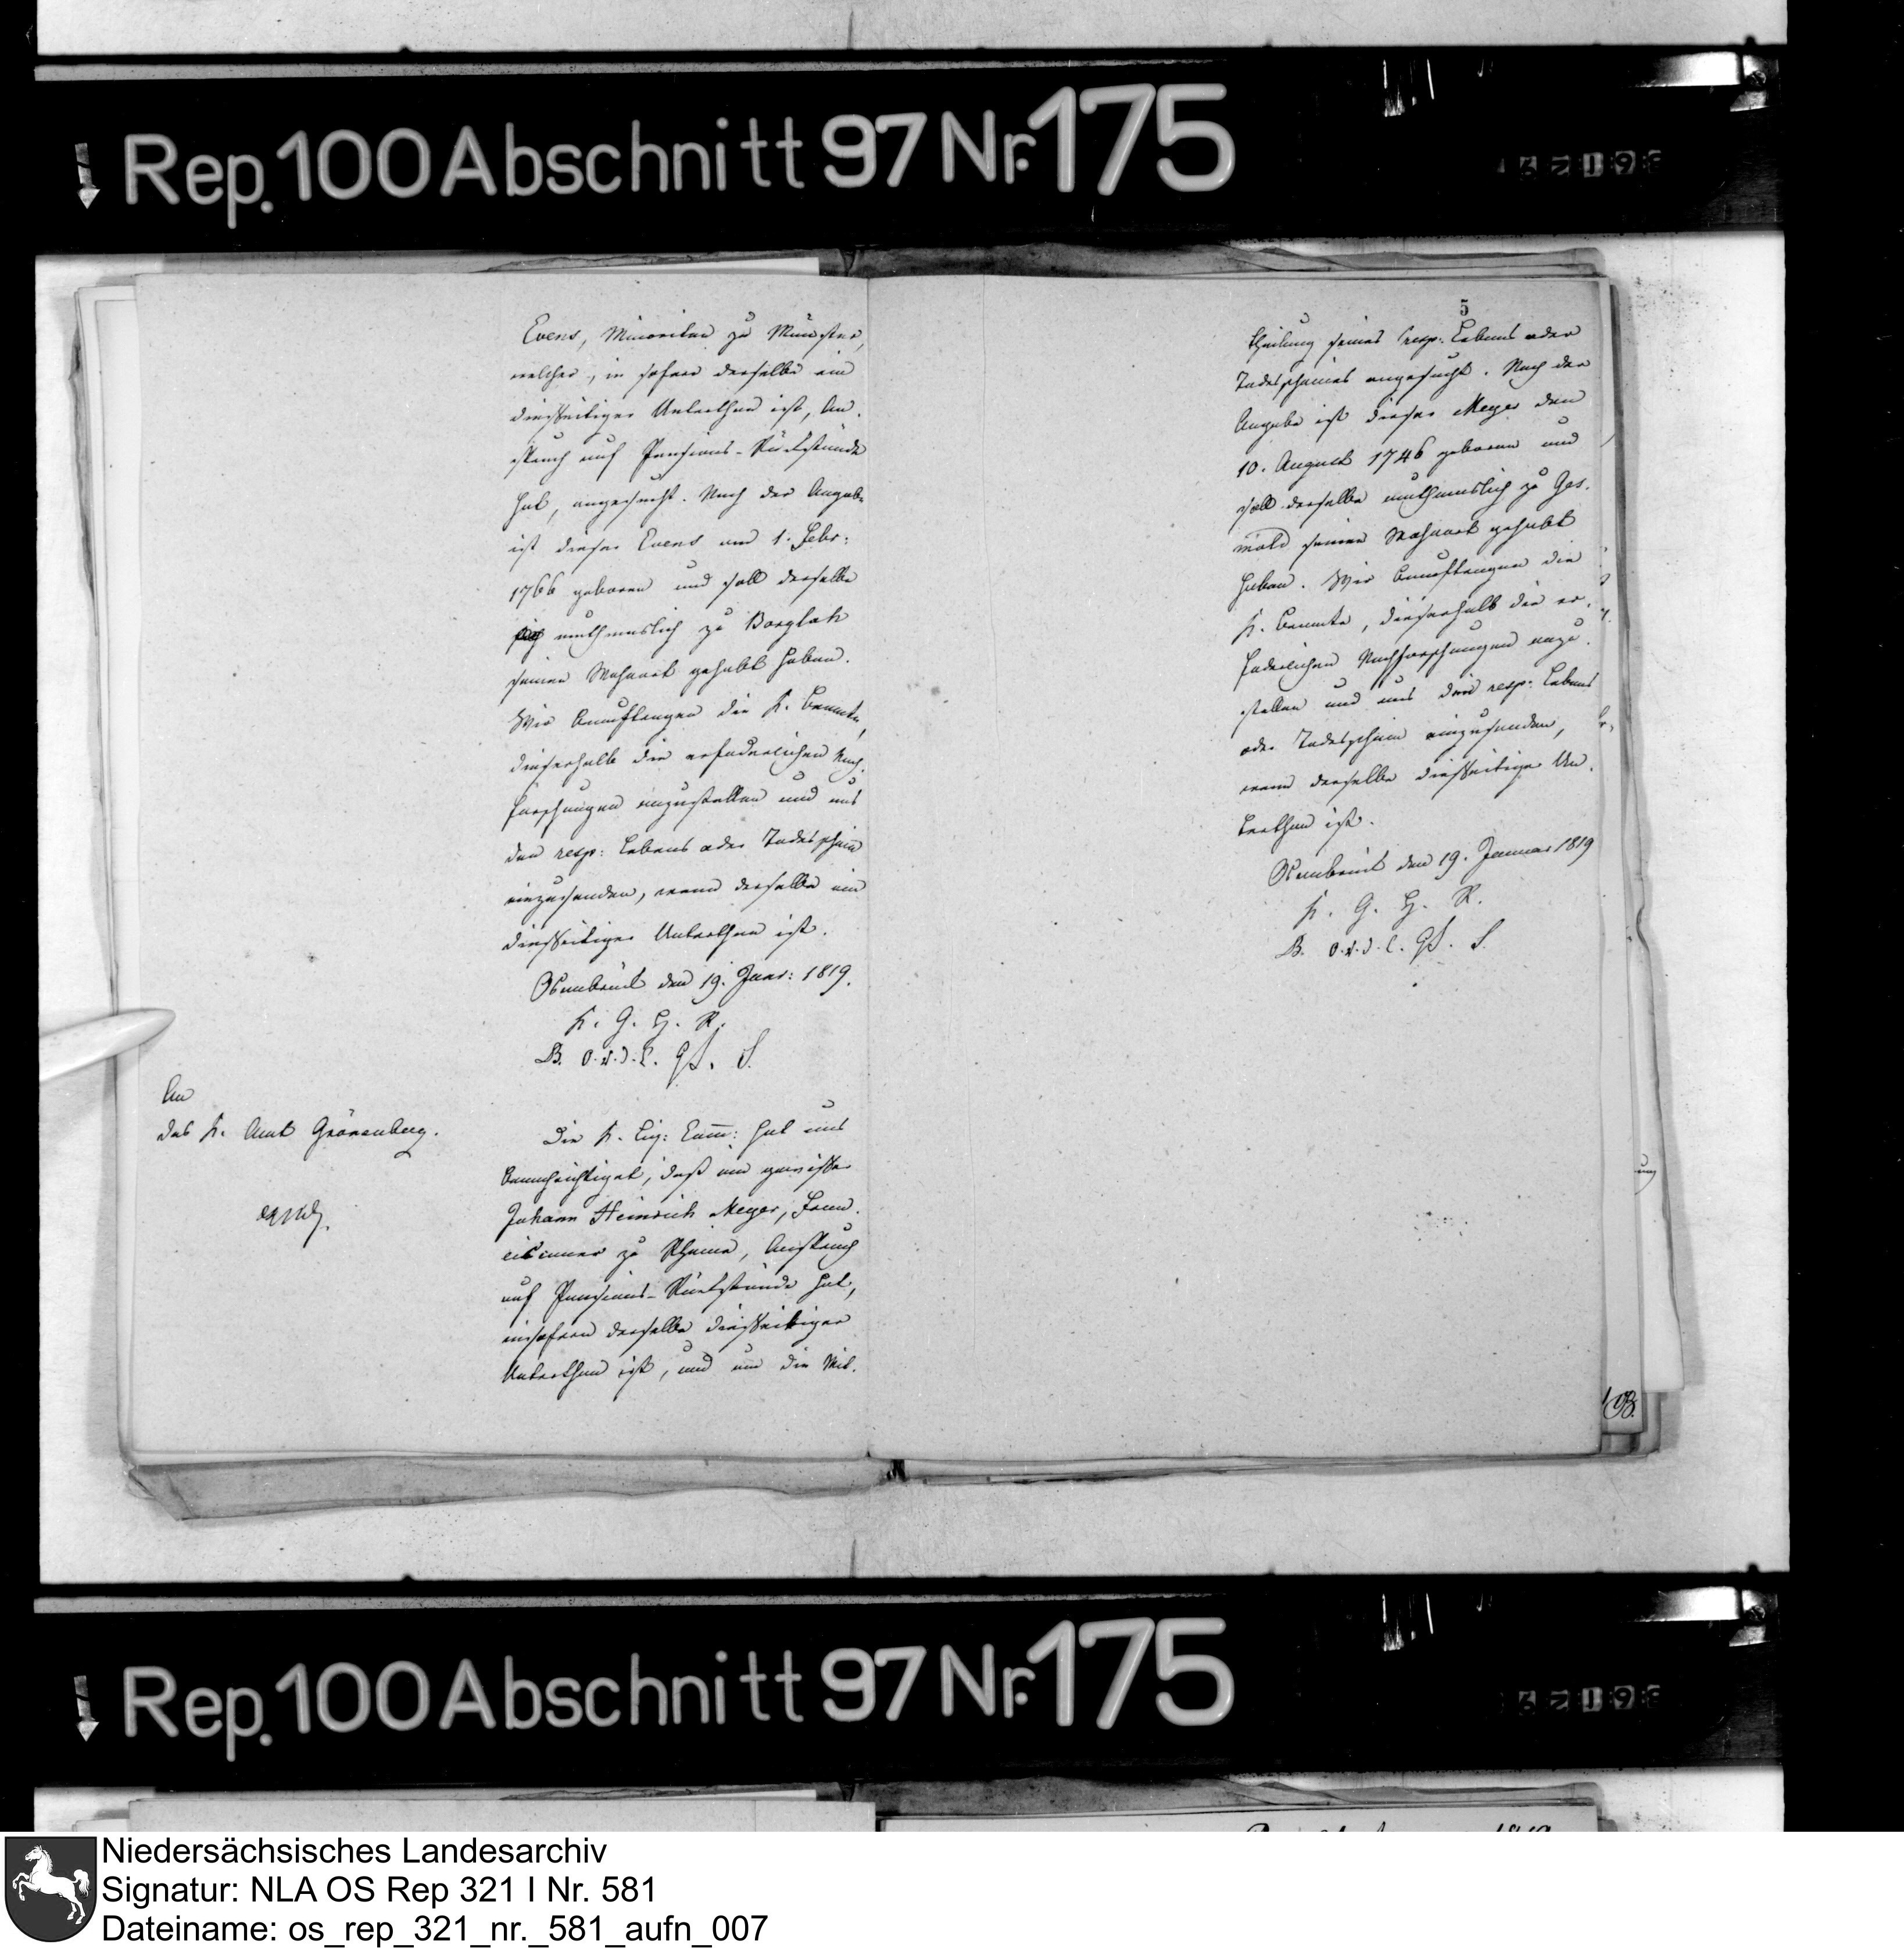 Rep. 100 Abschnitt 97 Nr. 175
Evens, Minoriten zu Münster,
welcher, in sofern derselbe ein
diesseitiger Unterthan ist, An-
spruch auf Pensions-Rückstände
hat, angesucht. Nach der Angabe
ist dieser Evens am 1. Febr:
1766 geboren und soll derselbe
muthmaslich zu Borgloh
seinen Wohnort gehabt haben.
Wir beauftragen die K. Beamte,
dieserhalb die erfoderlichen Nach-
forschungen anzustellen und uns
den resp: Lebens oder Todesschein
einzusenden, wenn derselbe ein
diesseitiger Unterthan ist.
Osnabrück den 19. Janr: 1819.
K. G. H. R.
B. o. v. d. l. S.
An
das K. Amt Grönenberg.
Die K. Liq: Comm: hat uns
benachrichtiget, daß ein gewisser
Johann Heinrich Meyer, Fran-
ciscaner zu Rheine, Anspruch
auf Pensions-Rückstände hat,
insofern derselbe diesseitiger
Unterthan ist, und um die Mit-
5
theilung seines resp: Lebens oder
Todesscheines angesucht. Nach der
Angabe ist dieser Meyer den
10. August 1746 geboren und
soll derselbe muthmaslich zu Ges-
mold seinen Wohnort gehabt
haben. Wir beauftragen die
K. Beamte, dieserhalb die er-
foderlichen Nachforschungen anzu-
stellen und uns den resp: Lebens
oder Todesschein einzusenden,
wenn derselbe diesseitiger Un-
terthan ist.
Osnabrück den 19. Januar 1819
K. G. H. R.
B. o. v. d. l. S.
Rep. 100 Abschnitt 97 Nr. 175
Niedersächsisches Landesarchiv
Signatur: NLA OS Rep 321 I Nr. 581
Dateiname: os_rep_321_nr._581_aufn_007